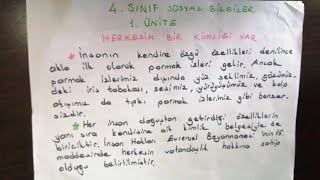 4. SINIF SOSYAL BİLGİLER
1. ÜNİTE
HERKESİN BİR KİMLİĞİ VAR
* İnsanın kendine özgü özellikleri denilince
akla ilk olarak parmak izleri gelir. Ancak
parmak izlerimiz dışında yüz şeklimiz, gözümüz
deki iris tabakası, sesimiz, yürüyüşümüz ve kalp
atışımız da tıpkı parmak izlerimiz gibi benzer
sizdir.
* Her insan doğuştan getirdiği özelliklerin
yanı sıra kendisine ait kimlik belgesiyle de
biriciktir. İnsan Hakları Evrensel Beyannamesi'nin 15.
maddesinde herkesin vatandaşlık hakkına sahip
olduğu belirtilmiştir.